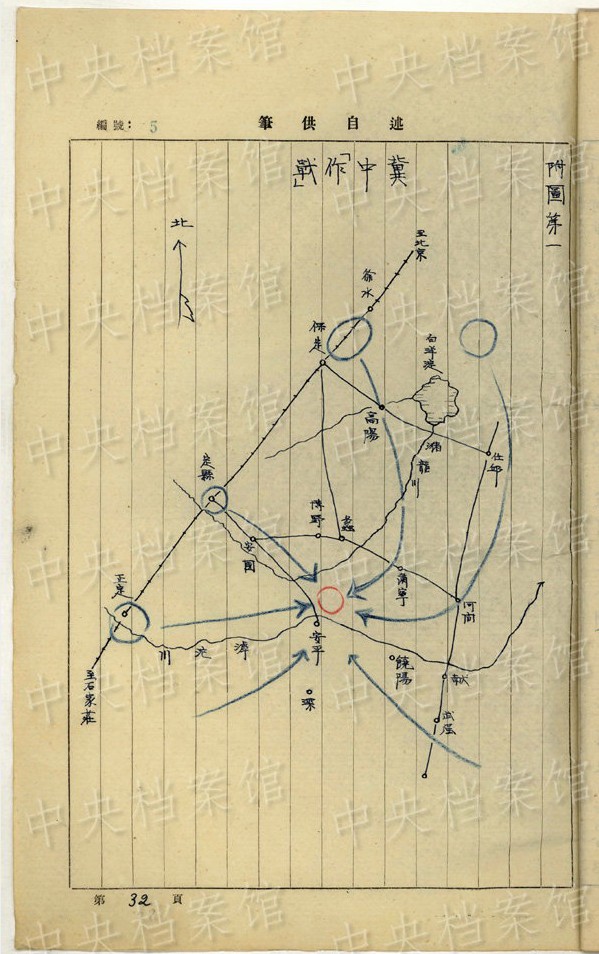 述自供筆
編號：5
附圖第一
冀中「作戰」
北
至北京
徐水
保定
白洋淀
高陽
潴龍川
任邱
定縣
安国
博野
蠡
肅寧
河間
正定
滹沱川
安平
饒陽
献
武强
深
至石家莊
第 32 頁
中央档案馆